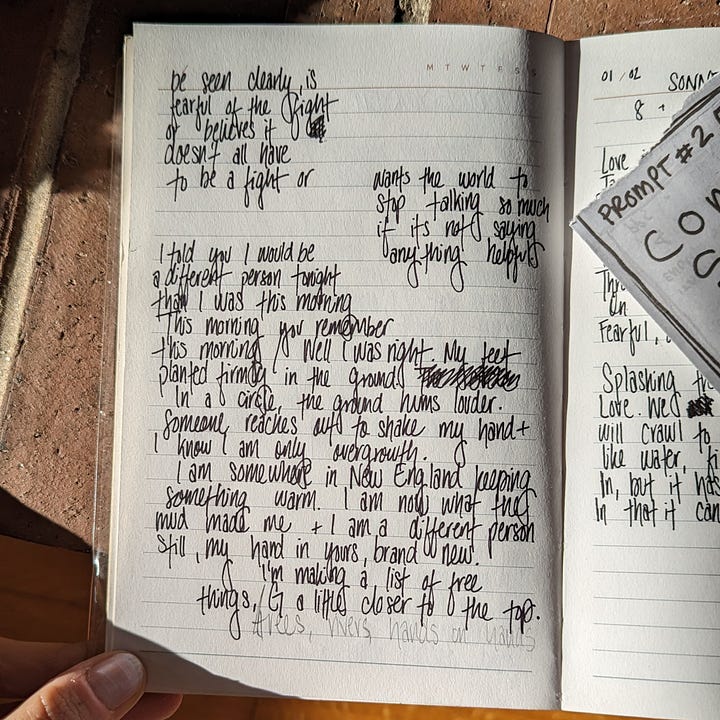 be seen clearly, is
fearful of the fight
or believes it
doesn't all have
to be a fight or
wants the world to
stop talking so much
if it's not saying
anything helpful
I told you I would be
a different person tonight
than I was this morning
This morning you remember
this morning / Well I was right. My feet
planted firmly in the ground
In a circle, the ground hums louder.
Someone reaches out to shake my hand +
I know I am only overgrowth.
I am somewhere in New England keeping
something warm. I am now what the
mud made me + I am a different person
still, my hand in yours, brand new.
I'm making a list of free
things, G a little closer to the top.
trees, rivers hands on hands
M T W T F S S
01/02 SONN
8 +
PROMPT #2
Co
Love
Thr
On
Fearful,
Splashing th
Love. We
will crawl to
like water, fi
In, but it has
In that it can